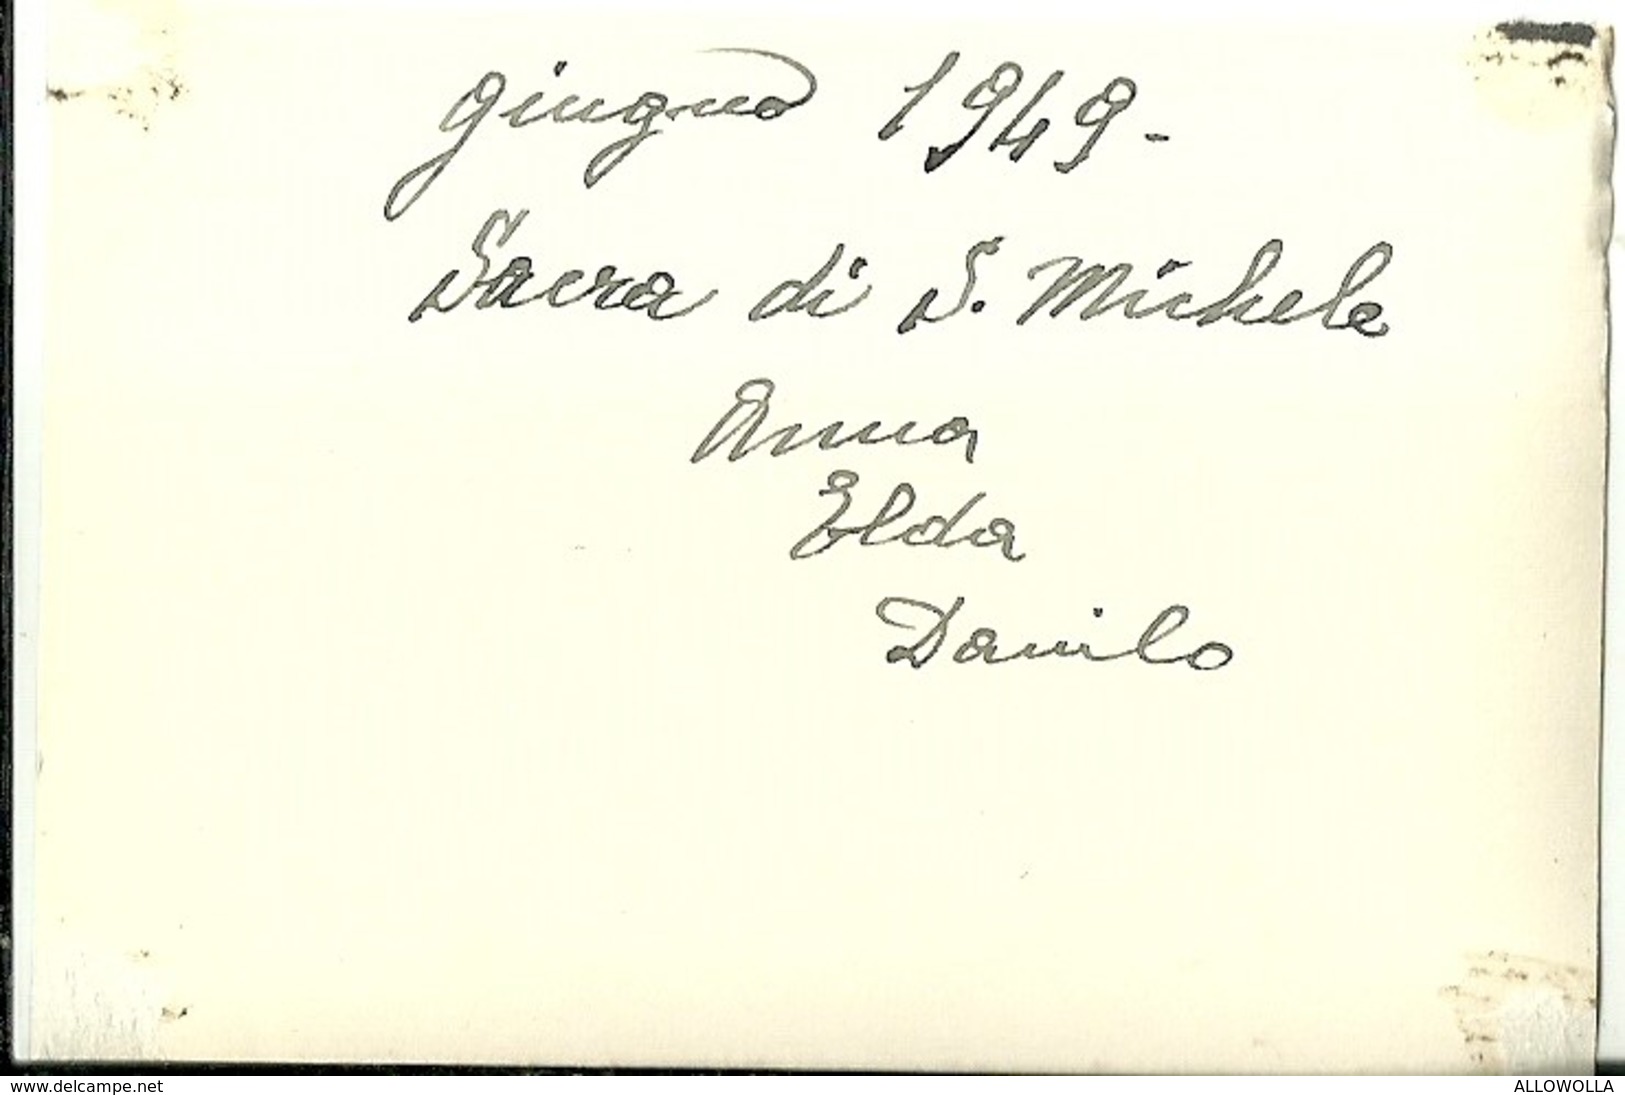 giugno 1949-
Sacra di S. Michele
Anna
Elda
Danilo
www.delcampe.net
ALLOWOLLA